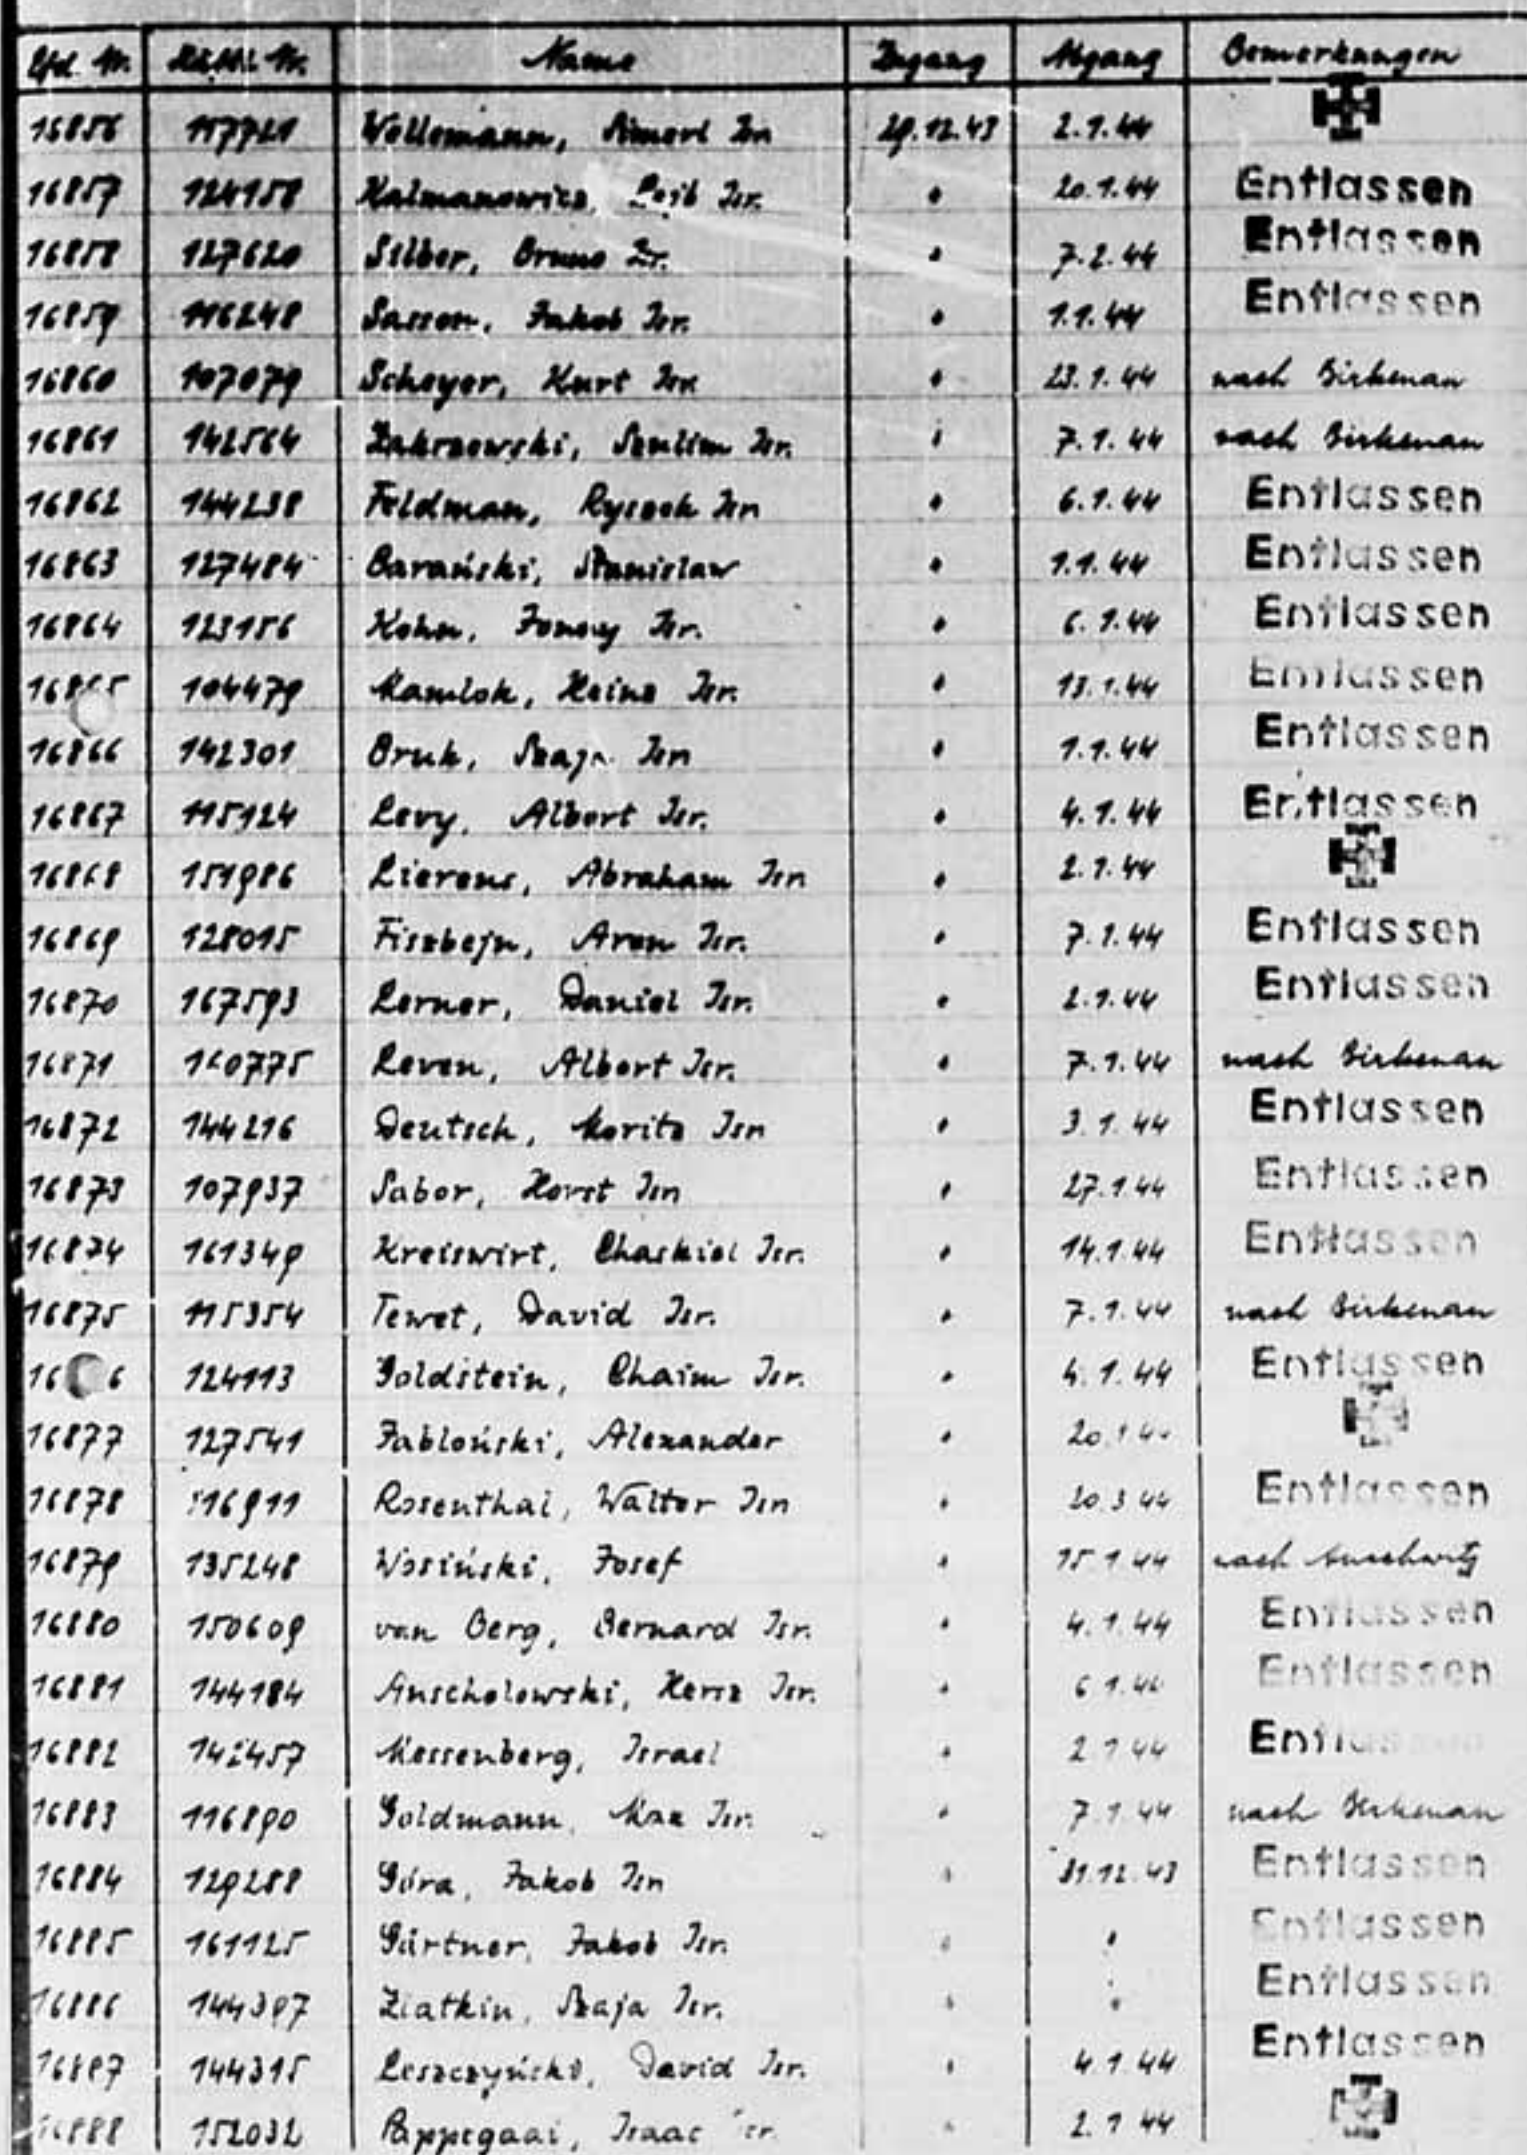 Lfd. Nr. Häftl. Nr. Name Zugang Abgang Bemerkungen
16856 117721 Wollemann, Isr. 29.12.43 2.1.44
16857 124158 Kalmanowicz, Leib Isr. " 20.1.44 Entlassen
16858 127620 Silber, Bruno Isr. " 7.2.44 Entlassen
16859 116248 Sasson, Jakob Isr. " 1.1.44 Entlassen
16860 107079 Scheyer, Kurt Isr. " 23.1.44 nach Birkenau
16861 142564 Zakrzewski, Szulim Isr. " 7.1.44 nach Birkenau
16862 144238 Feldman, Ryszek Isr. " 6.1.44 Entlassen
16863 127484 Barański, Stanislaw " 1.1.44 Entlassen
16864 123156 Kohn, Isr. " 6.1.44 Entlassen
16865 104479 Kamlok, Heinz Isr. " 13.1.44 Entlassen
16866 142301 Bruk, Szaja Isr. " 1.1.44 Entlassen
16867 115124 Levy, Albert Isr. " 4.1.44 Entlassen
16868 151986 Lierens, Abraham Isr. " 2.1.44
16869 128015 Fiszbejn, Aron Isr. " 7.1.44 Entlassen
16870 167593 Lerner, Daniel Isr. " 2.1.44 Entlassen
16871 160775 Leven, Albert Isr. " 7.1.44 nach Birkenau
16872 144216 Deutsch, Moritz Isr. " 3.1.44 Entlassen
16873 107937 Sabor, Horst Isr. " 27.1.44 Entlassen
16874 161349 Kreiswirt, Chaskiel Isr. " 14.1.44 Entlassen
16875 115354 Tewet, David Isr. " 7.1.44 nach Birkenau
16 6 124113 Goldstein, Chaim Isr. " 4.1.44 Entlassen
16877 127541 Jabloński, Alexander " 20.1.44
16878 116911 Rosenthal, Walter Isr. " 20.3.44 Entlassen
16879 135248 Wosiński, Josef " 15.1.44 nach Auschwitz
16880 150609 van Berg, Bernard Isr. " 4.1.44 Entlassen
16881 144184 Anscholowski, Hersz Isr. " 6.1.44 Entlassen
16882 142457 Messenberg, Israel " 2.1.44 Entlassen
16883 116890 Goldmann, Max Isr. " 7.1.44 nach Birkenau
16884 129288 Góra, Jakob Isr. " 31.12.43 Entlassen
16885 161125 Gärtner, Jakob Isr. " " Entlassen
16886 144397 Zlatkin, Szaja Isr. " " Entlassen
16887 144315 Leszczyński, David Isr. " 4.1.44 Entlassen
16888 152032 Pappegaai, Isaac Isr. " 2.1.44